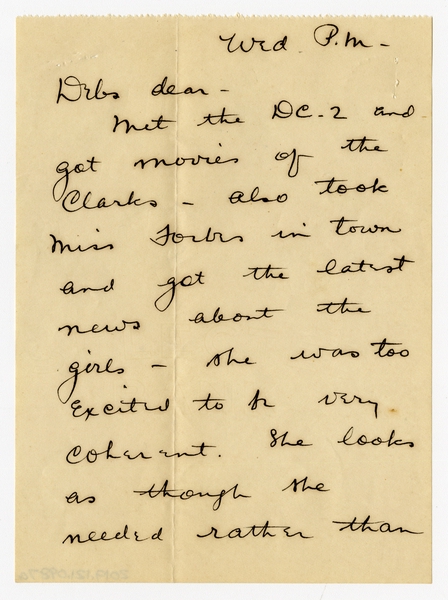 Wed. P.M-
Debs dear -
Met the DC-2 and
got movies of the
Clarks - also took
Miss Forbes in town
and got the latest
news about the
girls - she was too
excited to be very
coherent. She looks
as though she
needed rather than